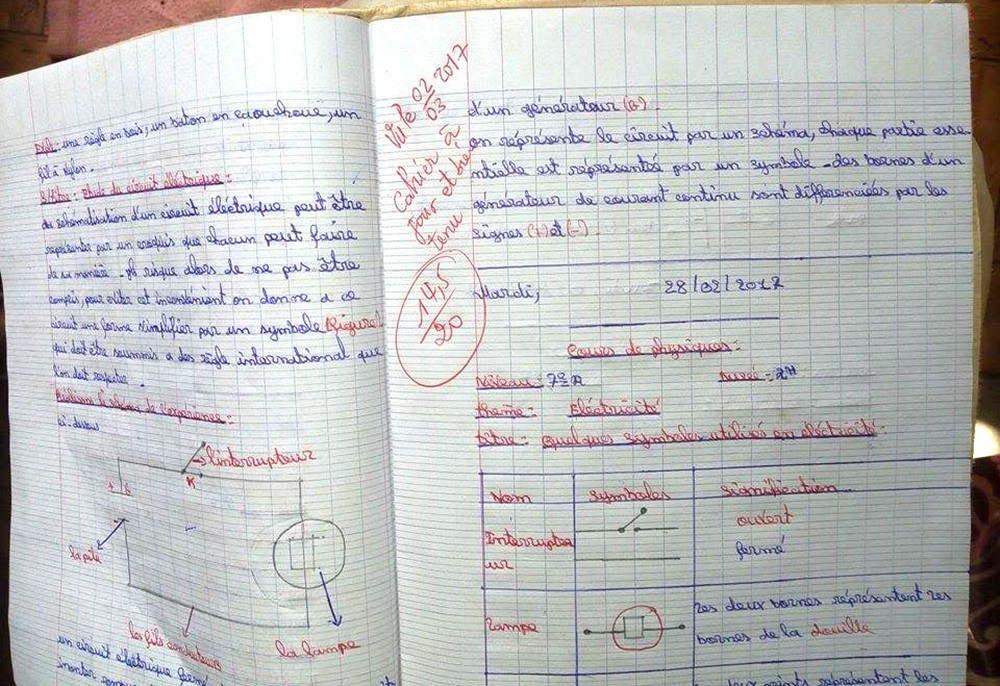 Expl: une règle en bois, un baton en caouchoué, un
fil à nylon.
Titre: Etude du circuit éléctrique:
schématisation d'un circuit éléctrique peut être
représenter par un croquis que chacun peut faire
de sa manière. risque alors de ne pas être
compris, pour eviter cet inconténient on donne a ce
circuit une forme simplifier par un symbole (figure)
qui doit être soummis a des règle international que
l'on doit respecter.
de l'expérience:
ci-dessus
l'interrupteur
K
+
-
la pile
les fils conducteurs
la lampe
un circuit éléctrique fermé
Vu le 02/03 2017
Cahier à
jour et bien
tenu
14,5/20
d'un générateur (G).
on représente le circuit par un schéma, chaque partie esse-
ntielle est représenteé par un symbole. des bornes d'un
générateur de courant continu sont differenciées par les
signes (+) et (-).
Mardi, 28/02/2017
Cours de physiques:
Niveau: 7e Durée: 2H
thème: Eléctricité
titre: quelques symboles utilisés en éléctricité:
Nom symboles signification
Interrupte ouvert
ur fermé
Lampe Les deux bornes représentent les
bornes de la douille
deux points représentent les